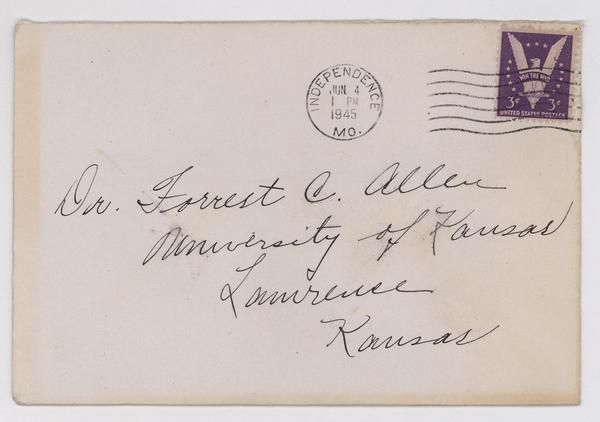 INDEPENDENCE
JUN 4
1 PM
1945
MO.
WIN THE WAR
3¢ 3¢
UNITED STATES POSTAGE
Dr. Forrest C. Allen
University of Kansas
Lawrence
Kansas